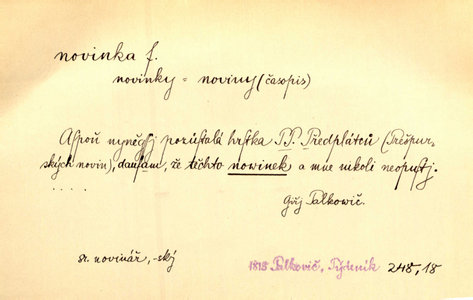 novinka f.
novinky = noviny (časopis)
Aspoň nynější pozůstalá hrstka P.P. Předplatců (Prešpur-
ských novin), daufám, že těchto nowinek a mne nikoli neopustj.
. . . .
Giřj Palkowič.
sr. novinář, -ský
1818 Palkovič, Týdeník 248,18